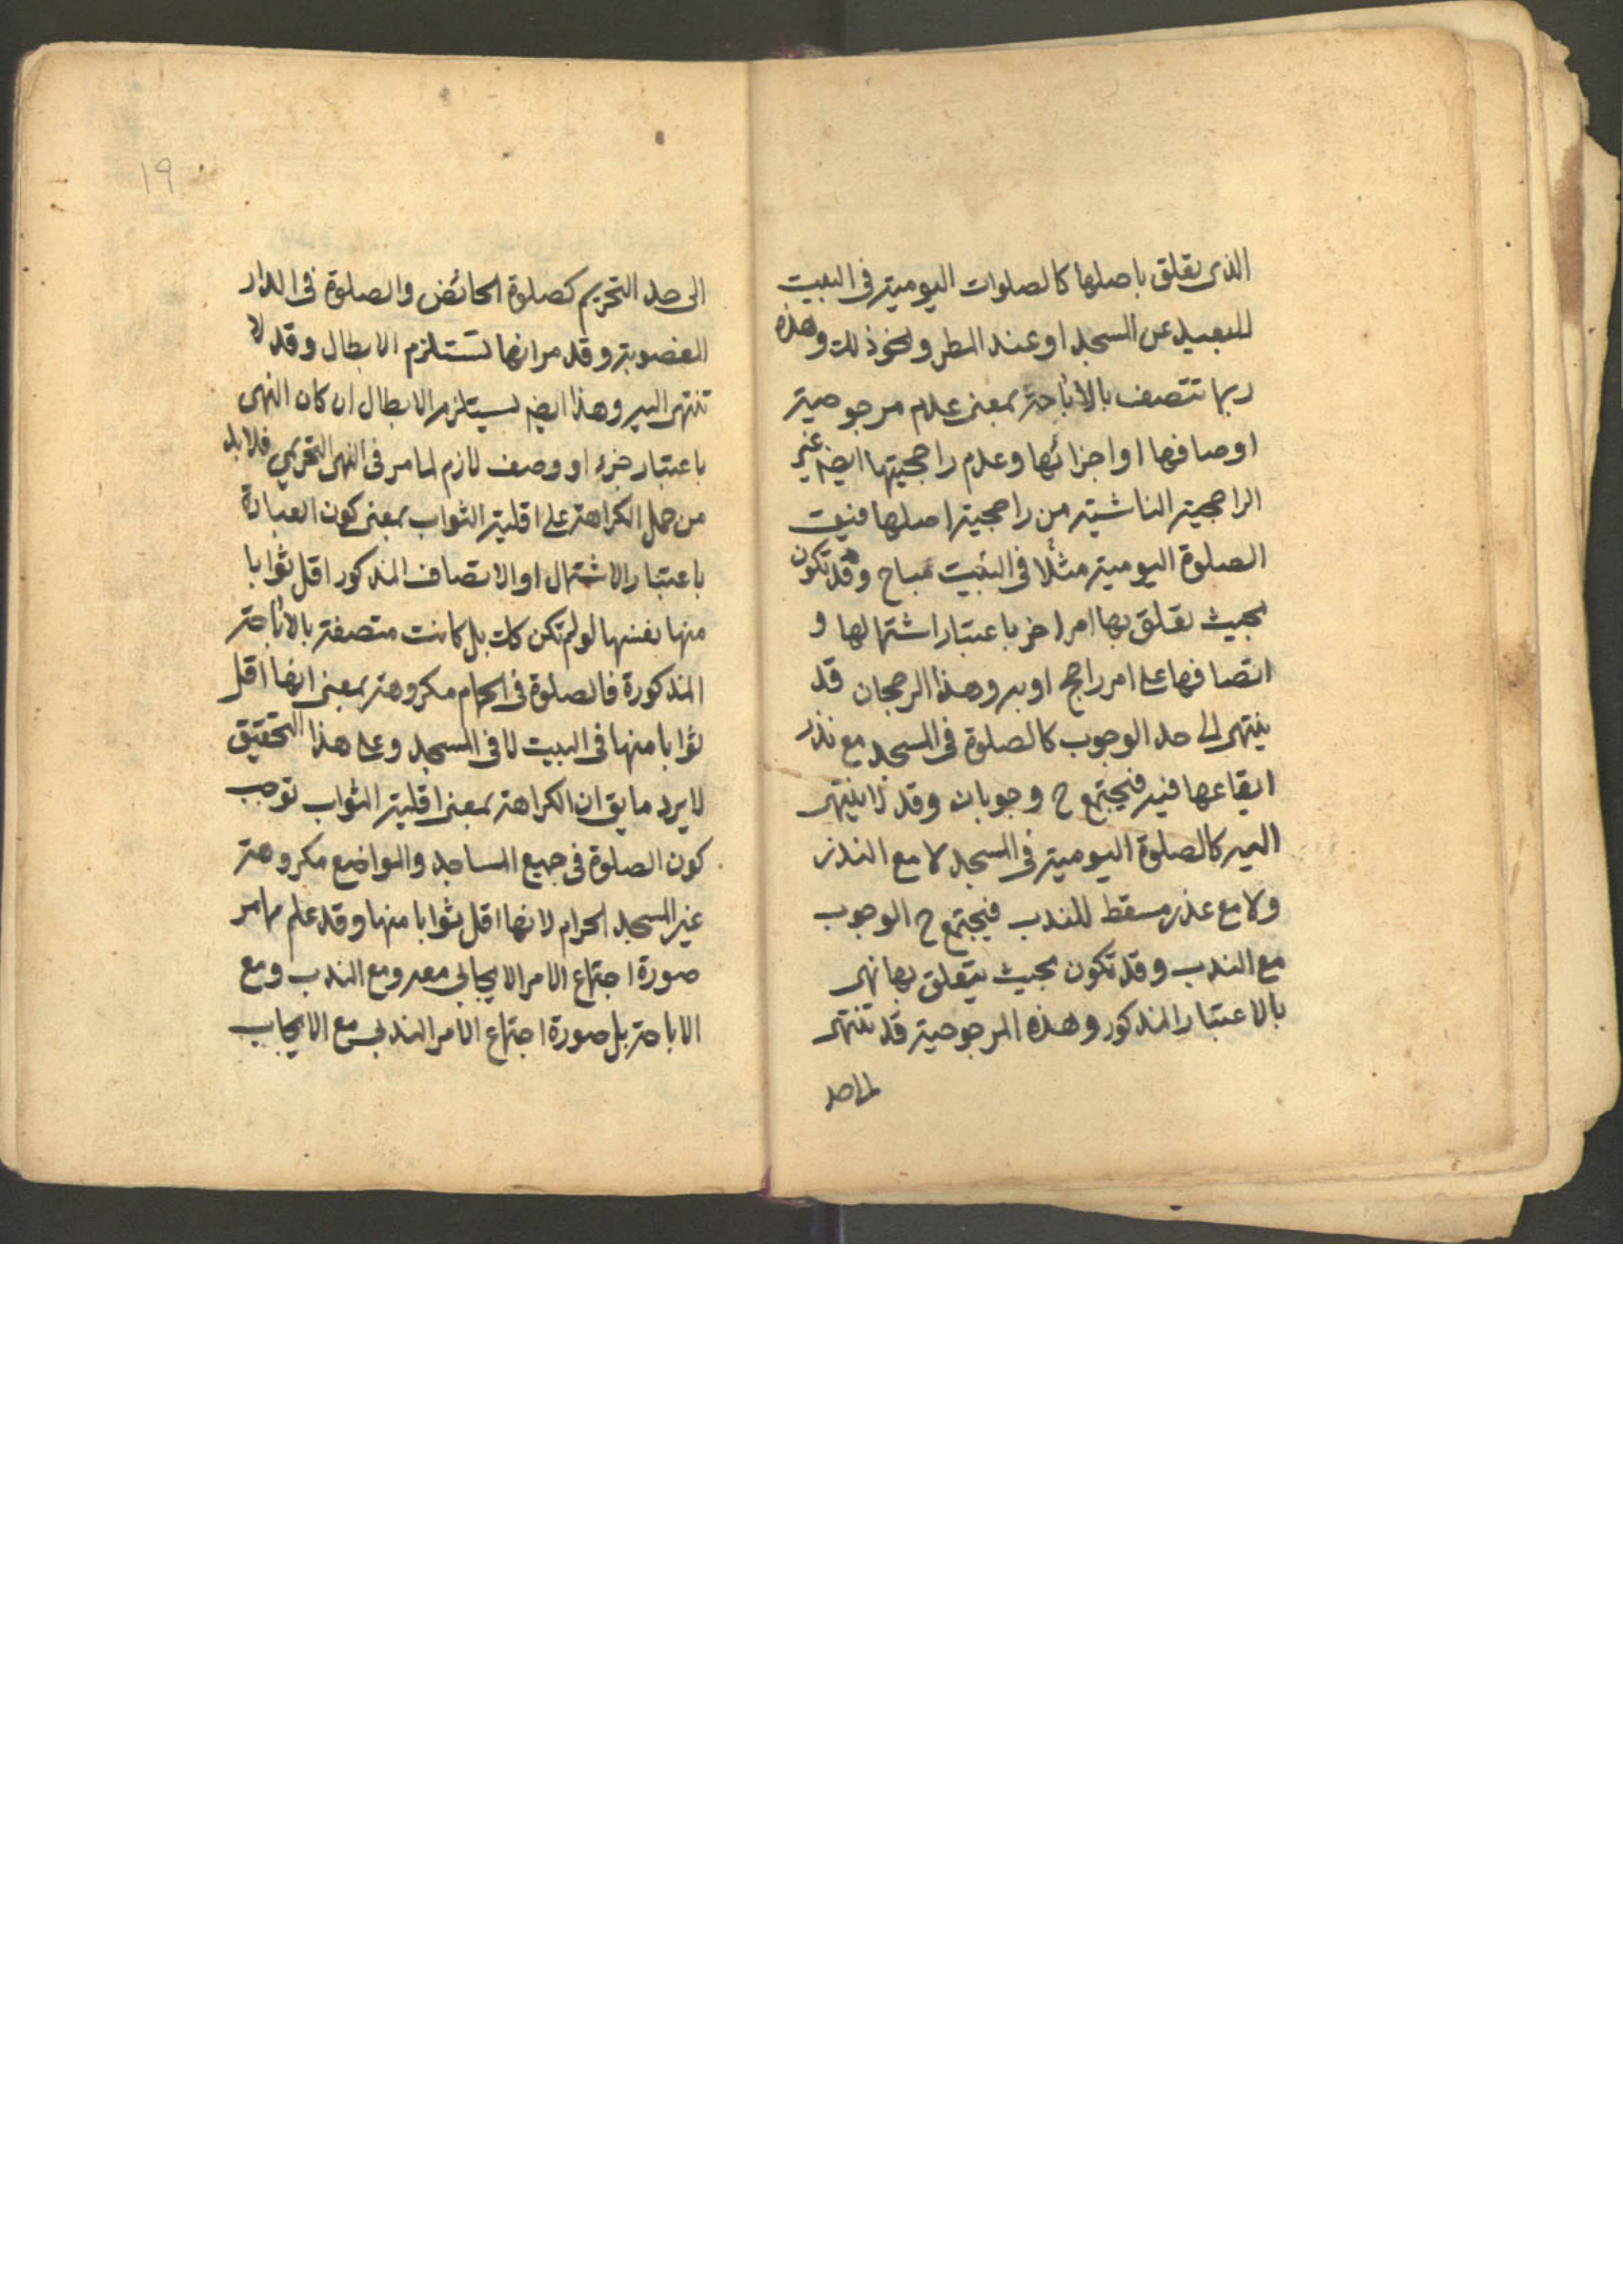 الذى تعلق باصلها كالصلوات اليومية فى البيت
للبعيد عن المسجد او عند المطر ونحو ذلك وهذه
ربما تتصف بالاباحة بمعنى عدم مرجوحية
اوصافها او اجزائها وعدم راجحيتها ايضا غير
الراجحية الناشية من راجحية اصلها فيق
الصلوة اليومية مثلا فى البيت مباح وقد تكون
بحيث تعلق بها امر اخر باعتبار اشتمالها و
اتصافها على امر راجح او به وهذا الرجحان قد
ينتهى الى حد الوجوب كالصلوة فى المسجد مع نذر
ايقاعها فيه فيجتمع ح وجوبان وقد لا ينتهى
اليه كالصلوة اليومية فى المسجد لا مع النذر
ولا مع عذر مسقط للندب فيجتمع ح الوجوب
مع الندب وقد تكون بحيث يتعلق بها نهى
بالاعتبار المذكور وهذه المرجوحية قد تنتهى
الى حد
١٩
الى حد التحريم كصلوة الحائض والصلوة فى الدار
المغصوبة وقد مر انها تستلزم الابطال وقد لا
تنتهى اليه وهذا ايضا يستلزم الابطال ان كان النهى
باعتبار جزء او وصف لازم لما مر فى النهى التحريمي فلا بد
من حمل الكراهة على اقلية الثواب بمعنى كون العبادة
باعتبار الاشتمال او الاتصاف المذكور اقل ثوابا
منها نفسها لو لم تكن كك بل كانت متصفة بالاباحة
المذكورة فالصلوة فى الحمام مكروهة بمعنى انها اقل
ثوابا منها فى البيت لا فى المسجد وعلى هذا التحقيق
لا يرد ما يق ان الكراهة بمعنى اقلية الثواب توجب
كون الصلوة فى جميع المساجد والمواضع مكروهة
غير المسجد الحرام لانها اقل ثوابا منها وقد علم مما مر
صورة اجتماع الامر الايجابى معه ومع الندب ومع
الاباحة بل صورة اجتماع الامر الندبى مع الايجاب